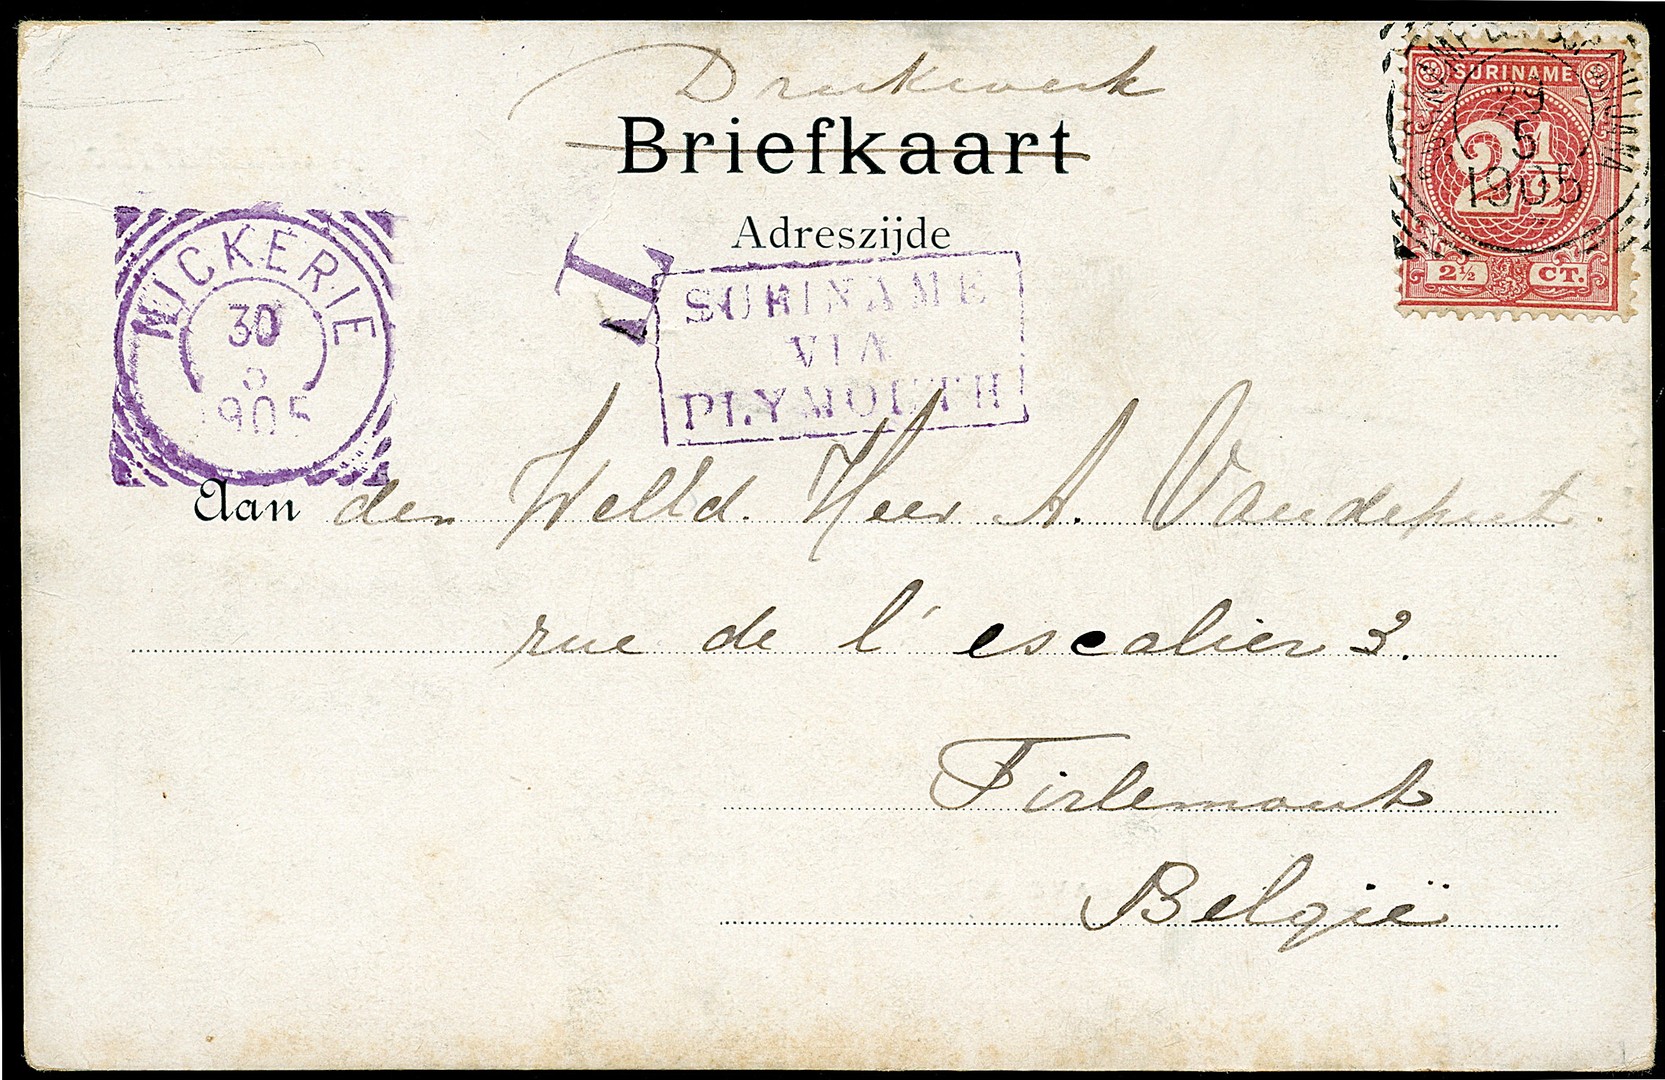 Drukwerk
Briefkaart
Adreszijde
SURINAME
2½
2½ CT.
29
5
1905
NICKERIE
30
5
1905
T
SURINAME
VIA
PLYMOUTH
Aan den WelEd. Heer A. Vandeput
rue de l'escalier 3.
Tirlemont
België